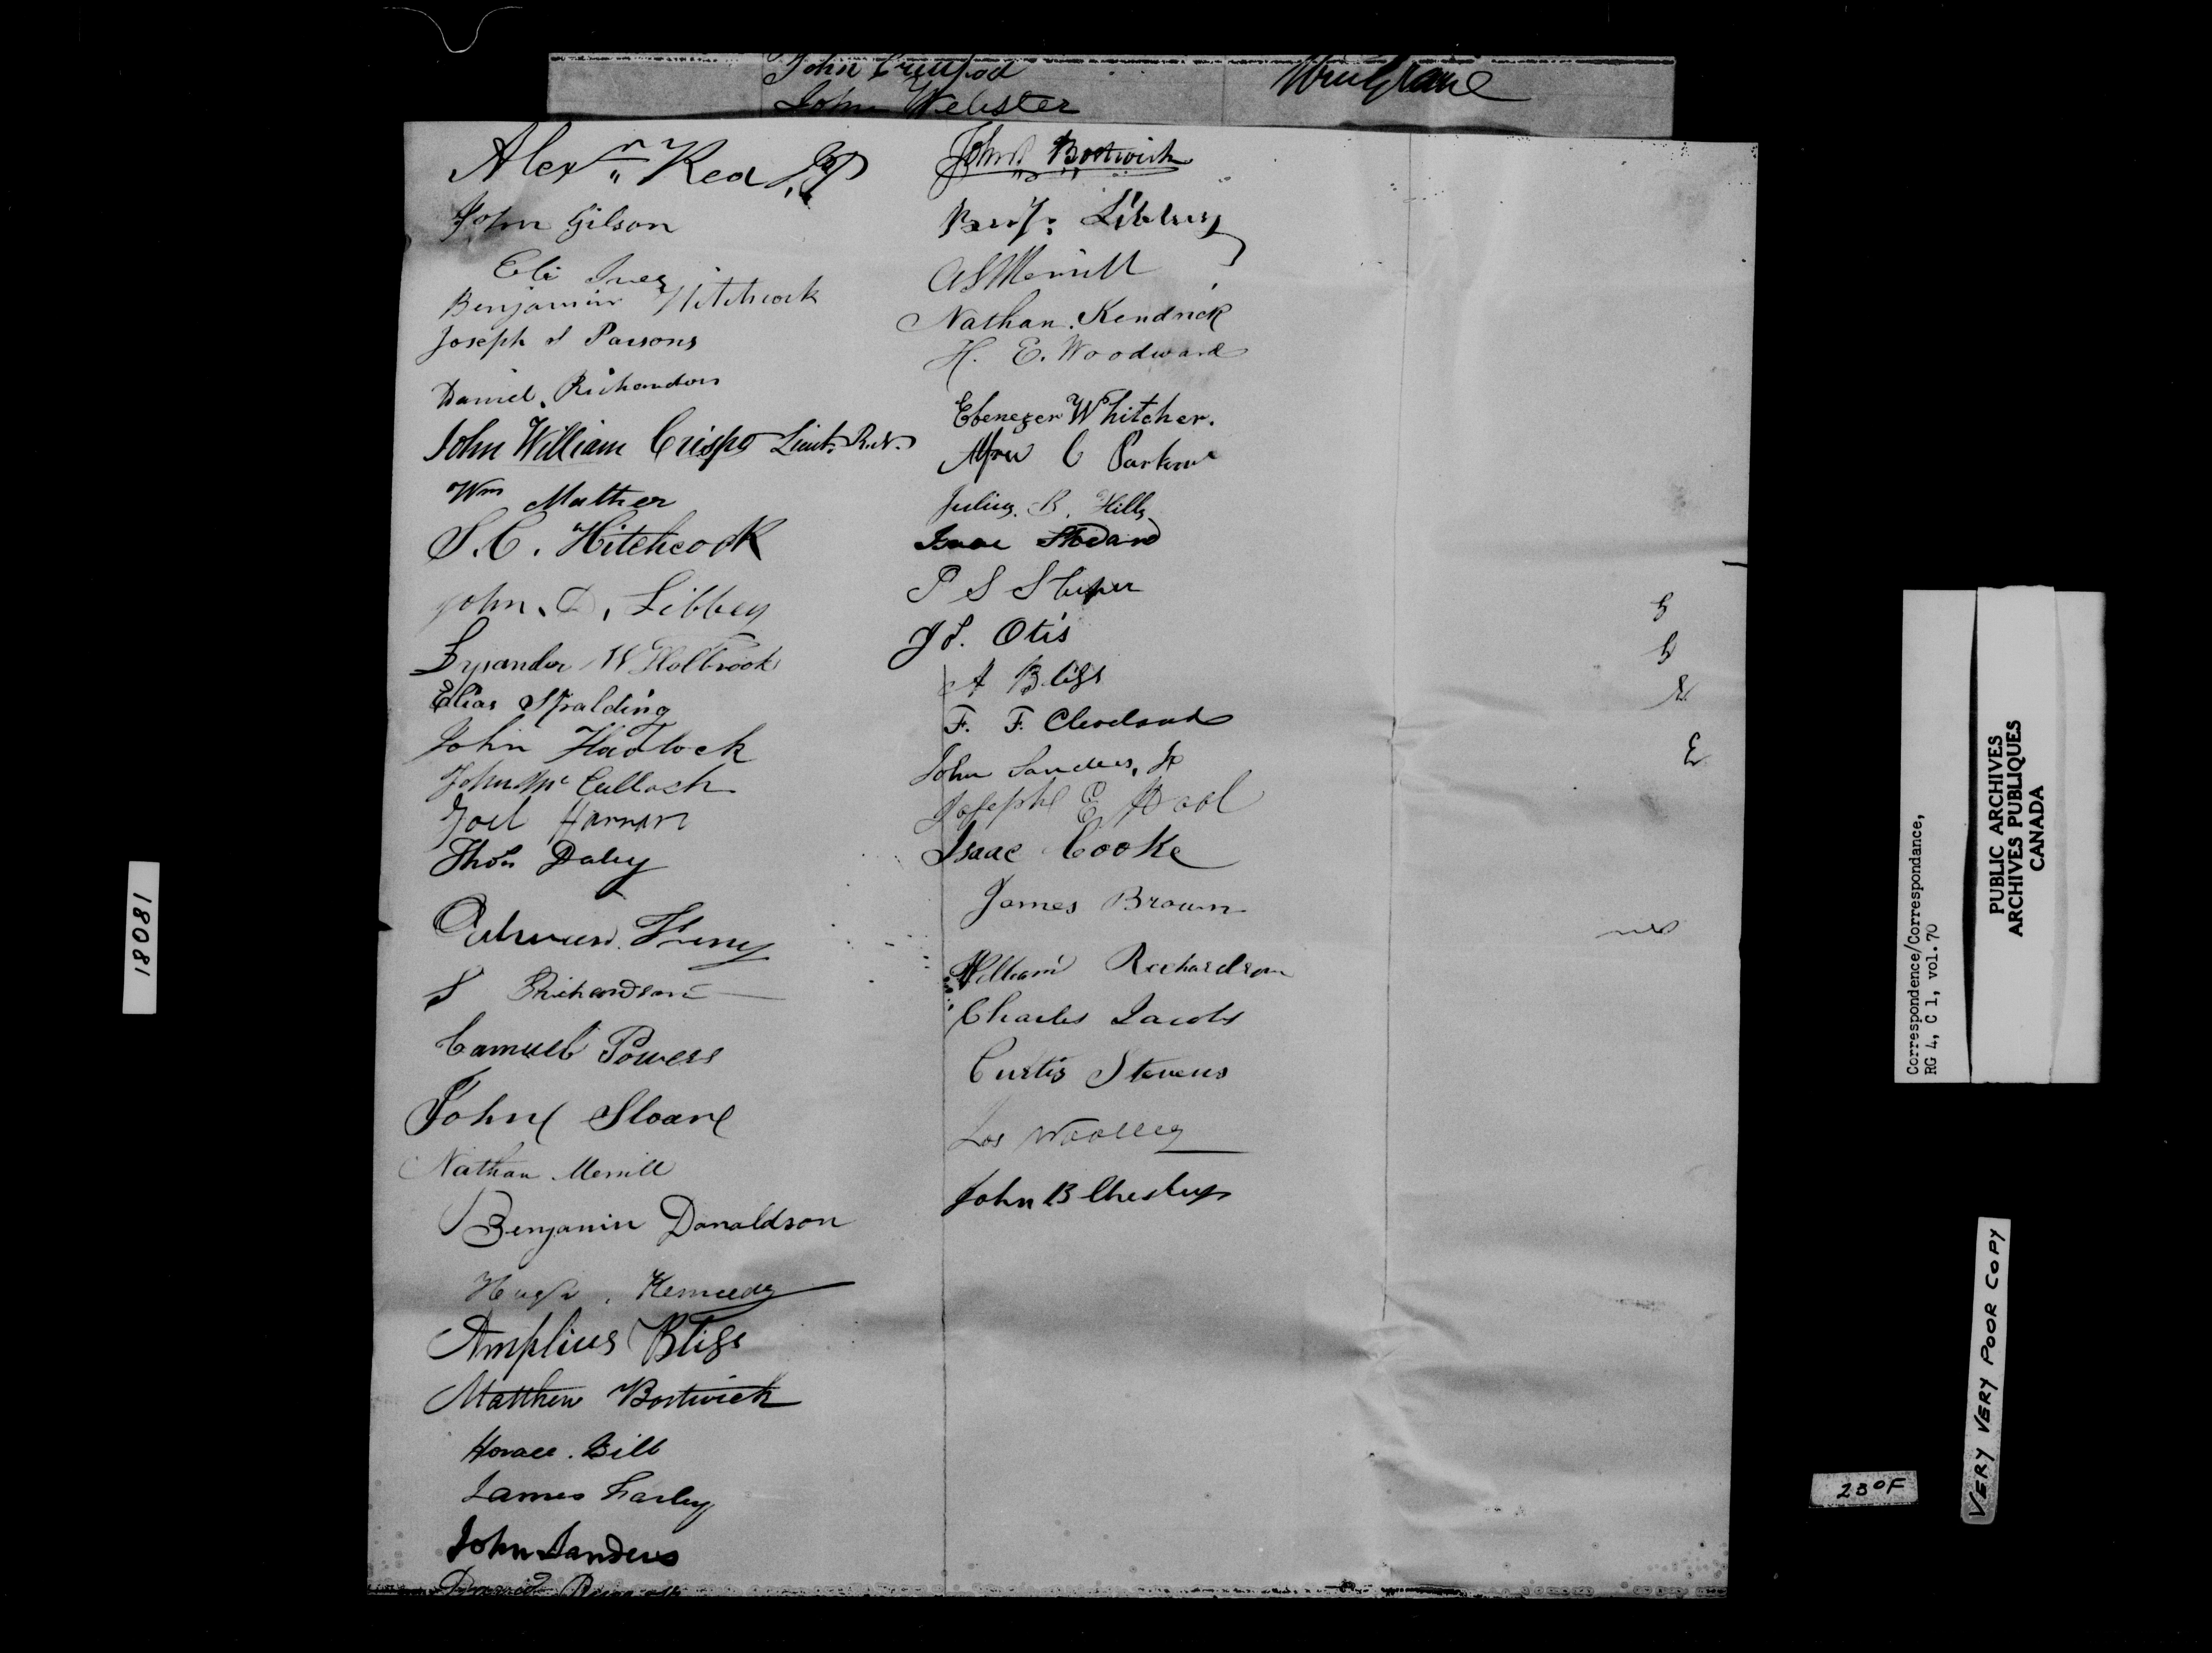 John
John Webster
Alexr Rea J.P
John Gilson
Eli Ives
Benjamin Hitchcock
Joseph S Parsons
Daniel. Richardson
John William Crispo Lieut. R.N.
Wm Mather
S. C. Hitchcock
John. D. Libbey
Lysander W Holbrook
Elias Spalding
John Hadlock
John Mc Culloch
Joel
Thos Daly
S Richardson
Samuel Powers
John Sloane
Nathan Merrill
Benjamin Donaldson
Hugh. Kennedy
Amplius Bliss
Matthew Bostwick
Horace. Bill
James Farley
John Sanders
John Bostwick
Benj. Libbey
A S Merrill
Nathan. Kendrick
H. E. Woodward
Ebenezer Whitcher.
C
Julius. B. Hills
Isaac Stodard
P S Sleeper
Otis
A Bliss
F. F. Cleveland
John Sanders, Jr
Joseph E
Isaac Cooke
James Brown
William Richardson
Charles Jacobs
Curtis Stevens
Woolley
John B
18081
Correspondence/Correspondance,
RG 4, C 1, vol. 70
PUBLIC ARCHIVES
ARCHIVES PUBLIQUES
CANADA
VERY VERY POOR COPY
230F